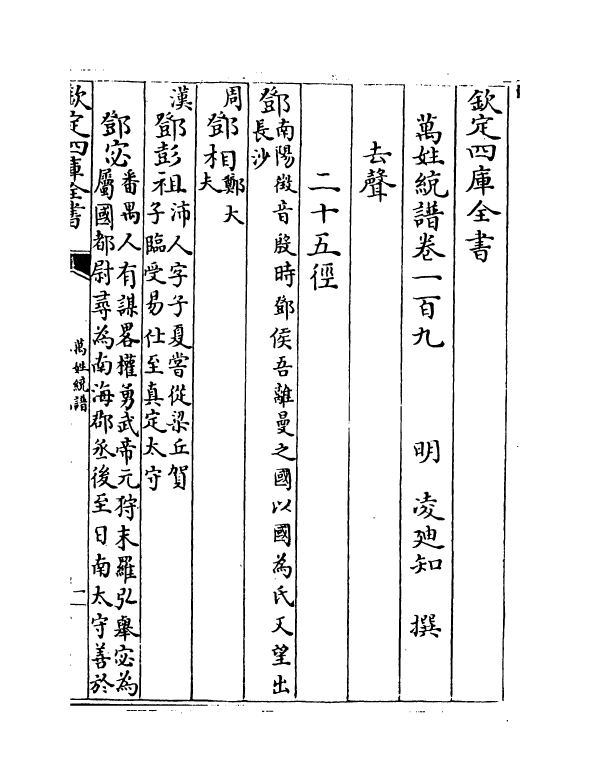 欽定四庫全書
萬姓統譜卷一百九
明 凌廸知 撰
去聲
二十五徑
鄧南陽徵音殷時鄧侯吾離曼之國以國為氏又望出
長沙
周
鄧相鄭大
夫
漢
鄧彭祖沛人字子夏嘗從梁丘賀
子臨受易仕至真定太守
鄧宓番禺人有謀畧權勇武帝元狩末羅弘舉宓為
屬國都尉尋為南海郡丞後至日南太守善於
欽定四庫全書
萬姓統譜